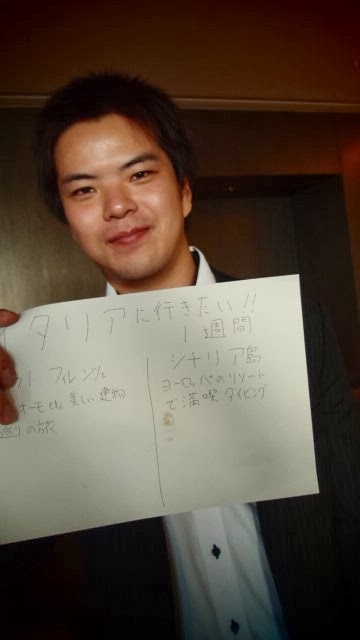 イタリアに行きたい!!
1週間
フィレンツェ
オーモetc 美しい建物
巡りの旅
シチリア島
ヨーロッパのリゾート
で満喫ダイビング